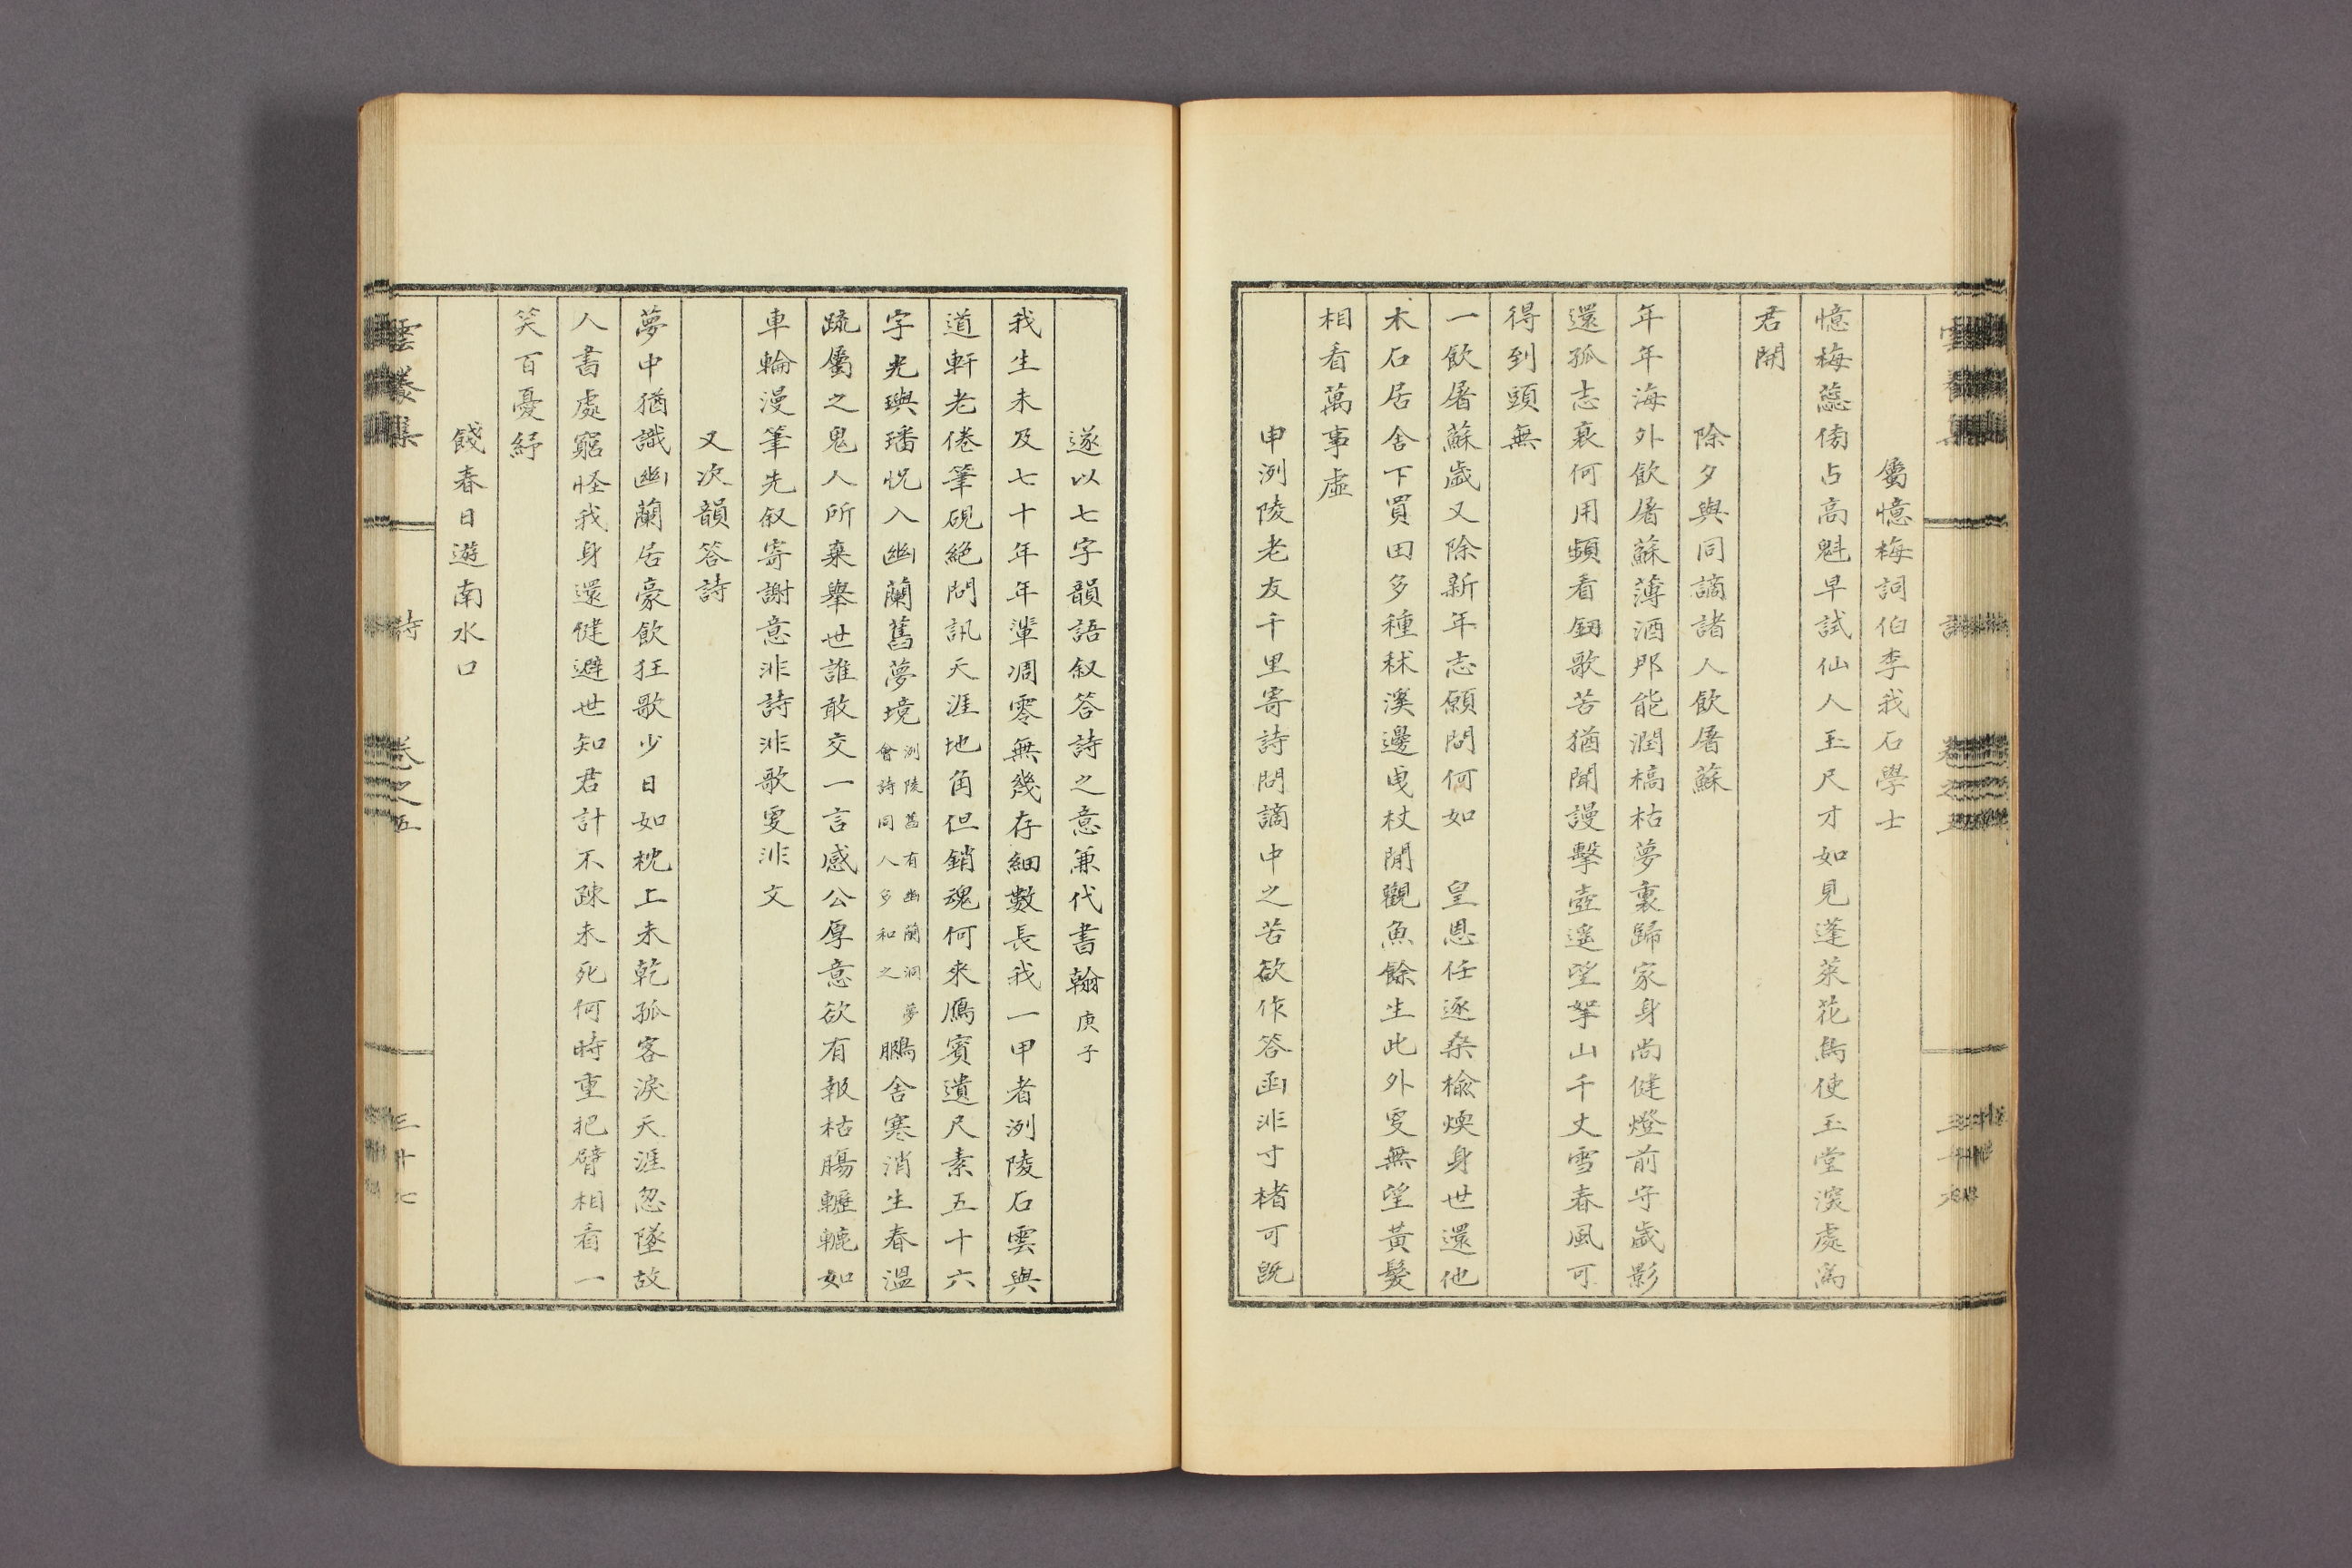 屬憶梅詞伯李我石學士
憶梅蕊傍占高魁早試仙人玉尺才如見蓬萊花鳥使玉堂深處爲
君開
除夕與同謫諸人飲屠蘇
年年海外飲屠蘇薄酒那能潤槁枯夢裏歸家身尚健燈前守歲影
還孤志衰何用頻看釼歌苦猶聞謾擊壺遙望拏山千丈雪春風可
得到頭無
一飮屠蘇歲又除新年志願問何如 皇恩任逐桑楡煥身世還他
木石居舍下買田多種秫溪邊曳杖閒觀魚餘生此外更無望黃髮
相看萬事虛
申洌陵老友千里寄詩問謫中之苦欲作答函非寸楮可旣
遂以七字韻語叙答詩之意兼代書翰庚子
我生未及七十年年輩凋零無幾存細數長我一甲者洌陵石雲與
道軒老倦筆硯絕問訊天涯地角但銷魂何來鴈賓遺尺素五十六
字光璵璠怳入幽蘭舊夢境洌陵舊有幽蘭洞夢
會詩同人多和之鵩舍寒消生春溫
疏屬之鬼人所棄擧世誰敢交一言感公厚意欲有報枯腸轣轆如
車輪漫筆先叙寄謝意非詩非歌更非文
又次韻答詩
夢中猶識幽蘭居豪飮狂歌少日如枕上未乾孤客淚天涯忽墜故
人書處窮怪我身還健避世知君計不踈未死何時重把臂相看一
笑百憂紓
餞春日遊南水口
雲養集 詩 卷之五 三十七